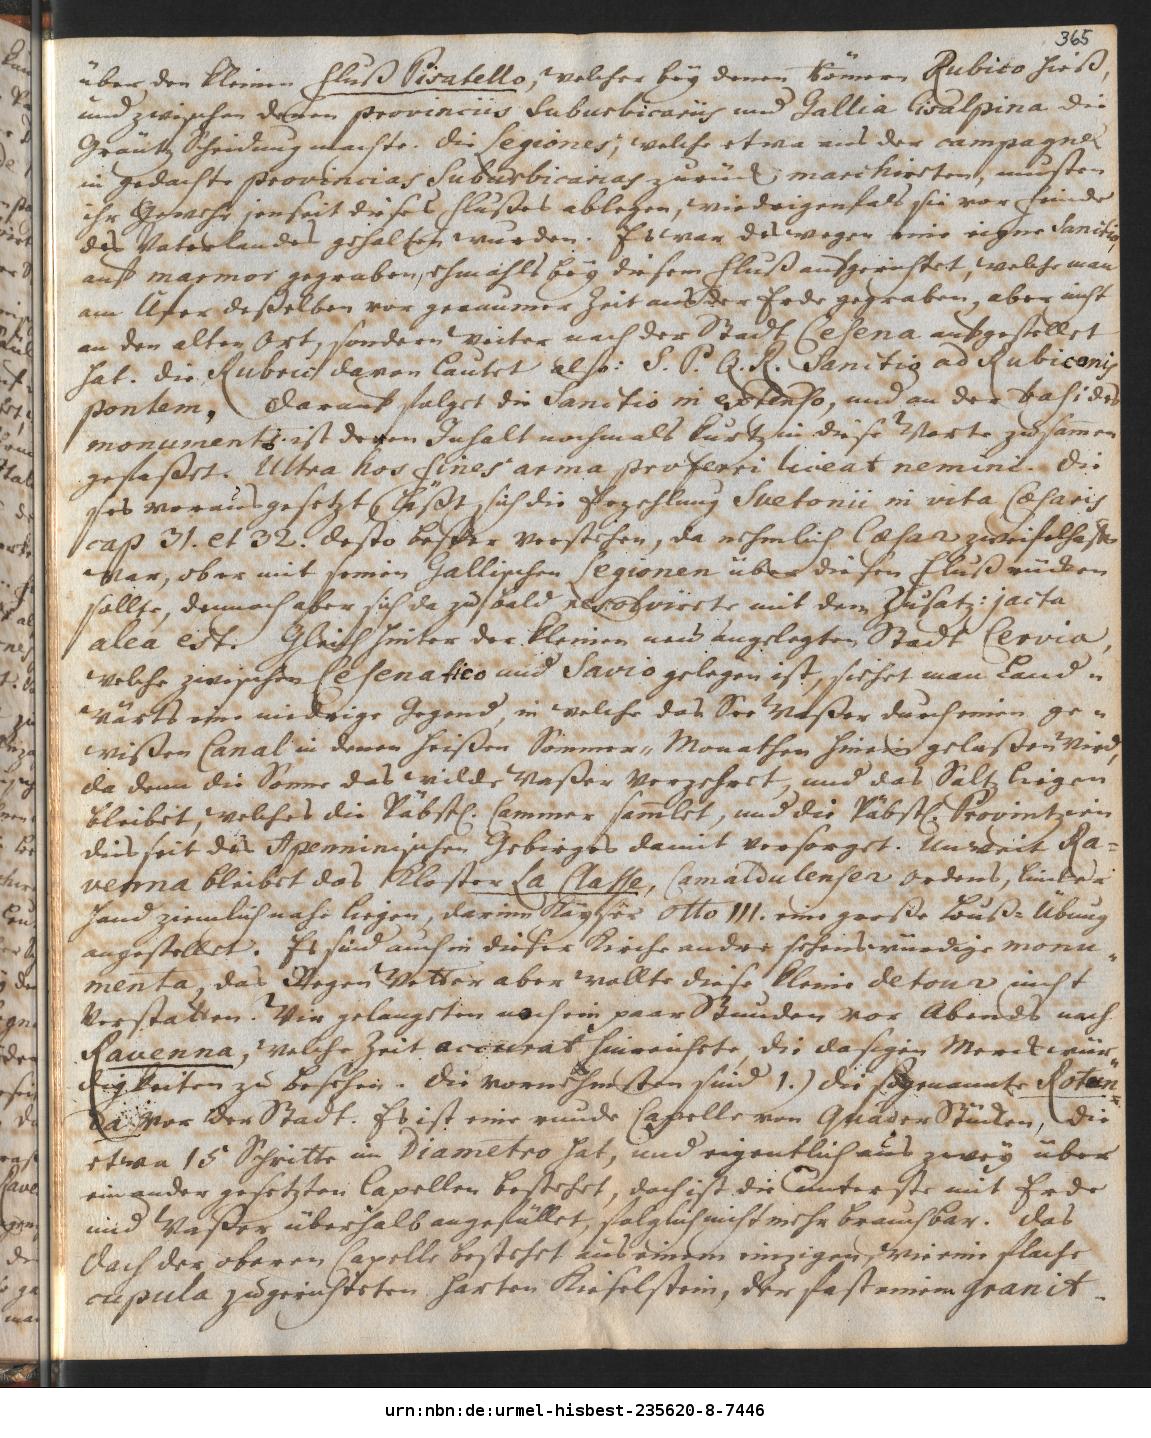 365
über den kleinen Fluß Pisatello, welcher bey denen Römern Rubico hieß,
und zwischen denen provinciis Suburbicariis und Gallia Cisalpina die
Gräntz Scheidung machte. Die Legiones, welche etwa aus der campagne
in gedachte provincias Suburbicarias zurück marchirten, musten
ihr Gewehr jenseit dieses Flußes ablegen, wiedrigenfals sie vor Feinde
des Vaterlandes gehalten wurden. Es war deswegen eine eigne Sanctio
auf marmor gegraben, ehmahls bey diesem Fluß aufgerichtet, welche man
am Ufer deßelben vor geraumer Zeit aus der Erde gegraben, aber nicht
an den alten Ort, sondern weiter nach der Stadt Cesena aufgestellet
hat. Die Rubric davon lautet also: S. P. Q. R. Sanctio ad Rubiconis
pontem, Darauf folget die Sanctio in extenso, und an der basi des
monuments ist deren Inhalt nochmals kurtz in diese Worte zusammen
gefaßet. Ultra hos fines arma proferri liceat nemini. Die
ses vorausgesetzt läßt sich die Erzehlung Suetonii in vita Cæsaris
cap 31. et 32. desto beßer verstehen, da nehmlich Cæsar zweifelhaft
war, ober mit seinen Gallischen Legionen über diesen Fluß rücken
sollte, dennoch aber sich da zu bald resolvirte mit dem Zusatz: jacta
alea est. Gleich hinter der kleinen neu angelegten Stadt Cervia,
welche zwischen Cesenatico und Savio gelegen ist, siehet man Land-
wärts eine niedrige Gegend, in welche das See Waßer durch einen ge-
wißen Canal in denen heißen Sommer-Monathen hinein gelaßen wird,
da denn die Sonne das wilde Waßer verzehret, und das Saltz liegen
bleibet, welches die Päbstl. Cammer sammlet, und die Päbstl. Provintzien
disseit des Apenninischen Gebirges damit versorget. Unweit Ra-
venna bleibet das Kloster La Classe, Camaldulenser Ordens, lincker
Hand ziemlich nahe liegen, darinn Käyser Otto III. eine große Buß-Übung
angestellet. Es sind auch in dieser Kirche andre sehenswürdige monu-
menta, das Regen Wetter aber wollte diese kleine detour nicht
verstatten. Wir gelangten noch ein paar Stunden vor Abends nach
Ravenna, welche Zeit accurat hinreichte, die dasigen Merckwür-
digkeiten zu besehen. Die vornehmsten sind 1.) die sogenannte Rotun-
da vor der Stadt. Es ist eine runde Capelle von Quader Stücken, die
etwa 15 Schritte im Diametro hat, und eigentlich aus zwey über
einander gesetzten Capellen bestehet, doch ist die unterste mit Erde
und Waßer überhalb angefüllet, folglich nicht mehr brauchbar. Das
Dach der oberen Capelle bestehet aus einem einzigen, wie eine flache
cupula zugerichteten harten Kieselstein, der fast einem granit-
urn:nbn:de:urmel-hisbest-235620-8-7446